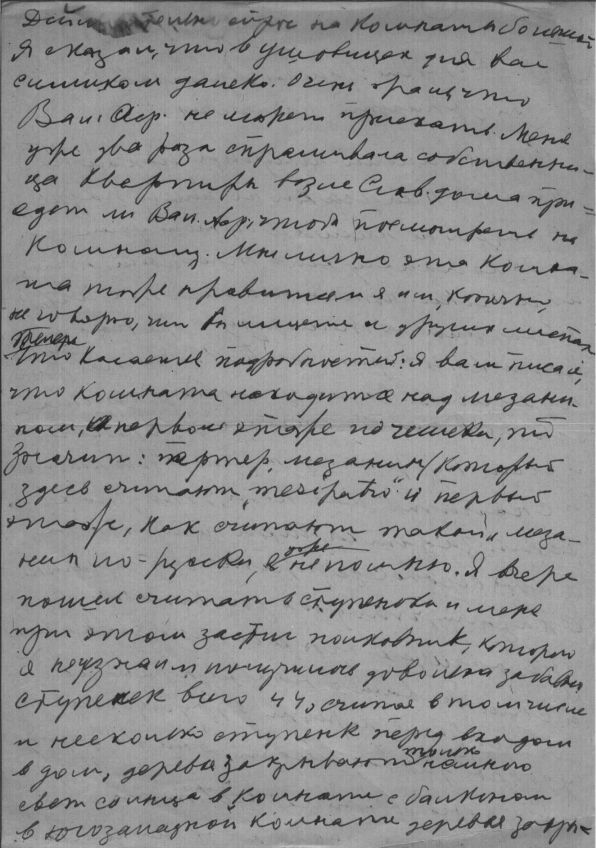 на комнаты
Я сказал, что в для вас
слишком далеко. Очень что
Вал. Адр. не может приехать. Меня
уже два раза спрашивала собственни-
ца квартиры возле Слав. дома при-
едет ли Вал. Адр., чтоб посмотреть на
комнату. Мне лично эта комна-
та тоже нравится и я им, конечно,
не говорю, что Вы ищете и других местах
Теперь
Что касается подробностей: я вам писал,
что комната находится над мезани-
ном, в первом этаже по чешски, что
значит: партер, мезанин (который
здесь считают „mezipatro“ и первый
этаж, как считают такой меза-
даже
нин по-русски, я не помню. Я вчера
пошел считать ступеньки и меня
при этом застиг полковник, которого
я неузнал и получилось довольно
ступенек всего 44, считая в том числе
и несколько ступенек перед входом
только
в дом, деревья закрывают
свет солнца в комнате с балконом
в югозападной комнате деревья закры-